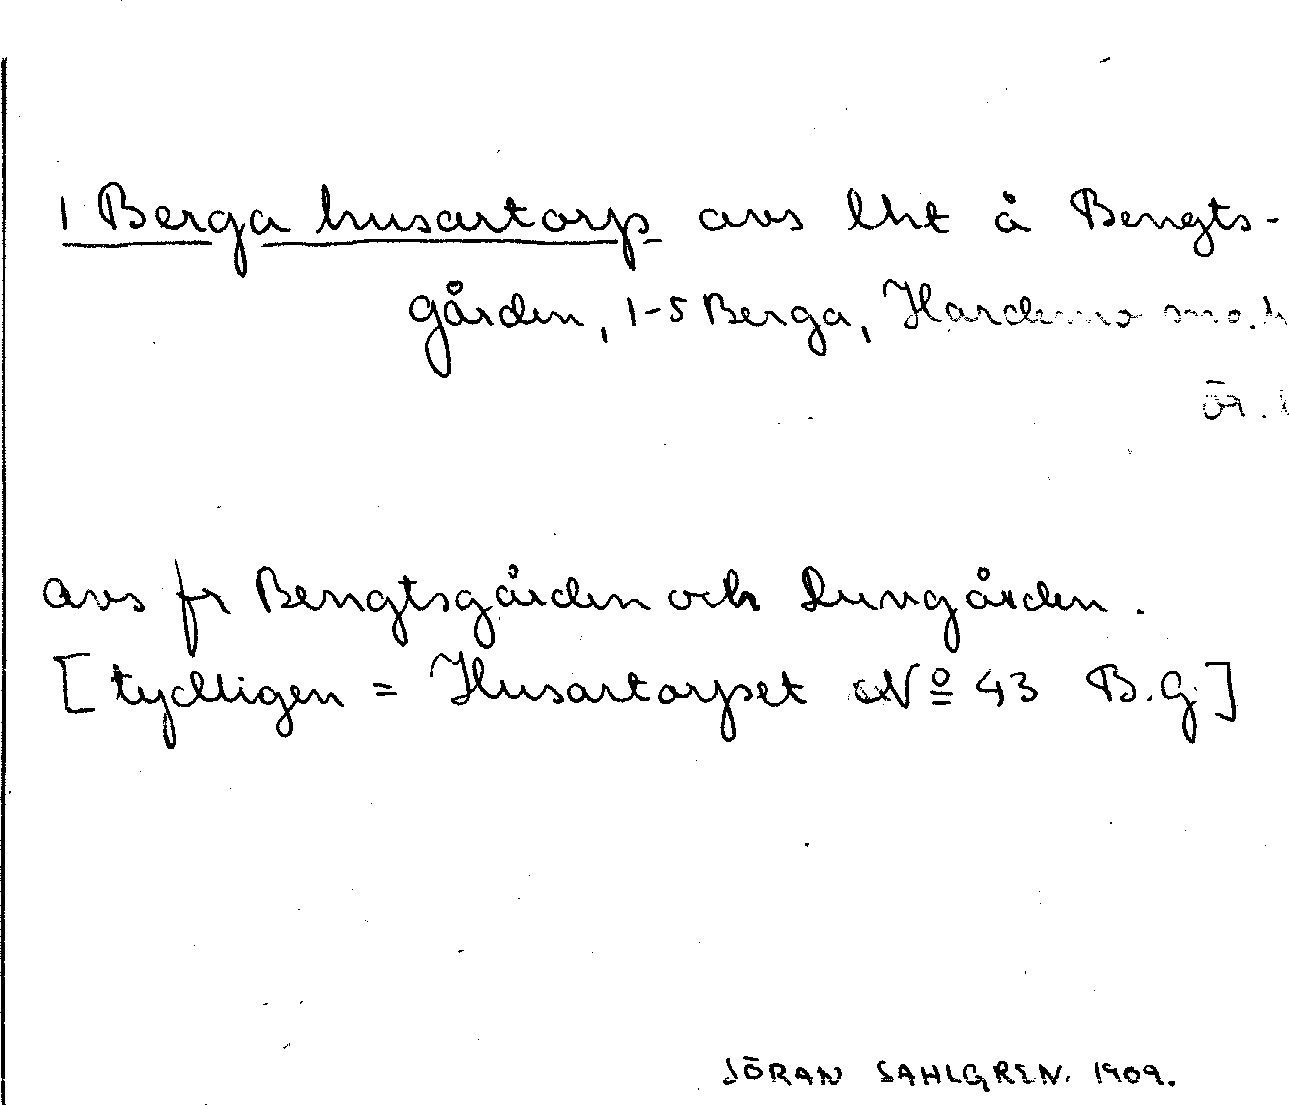 1 Berga husartorp avs lht å Bengts-
gården, 1-5 Berga, Hardemo sn
ör.
avs fr Bengtsgården och Lungården.
[tydligen = Husartorpset Nº 43 B.G]
JÖRAN SAHLGREN. 1909.